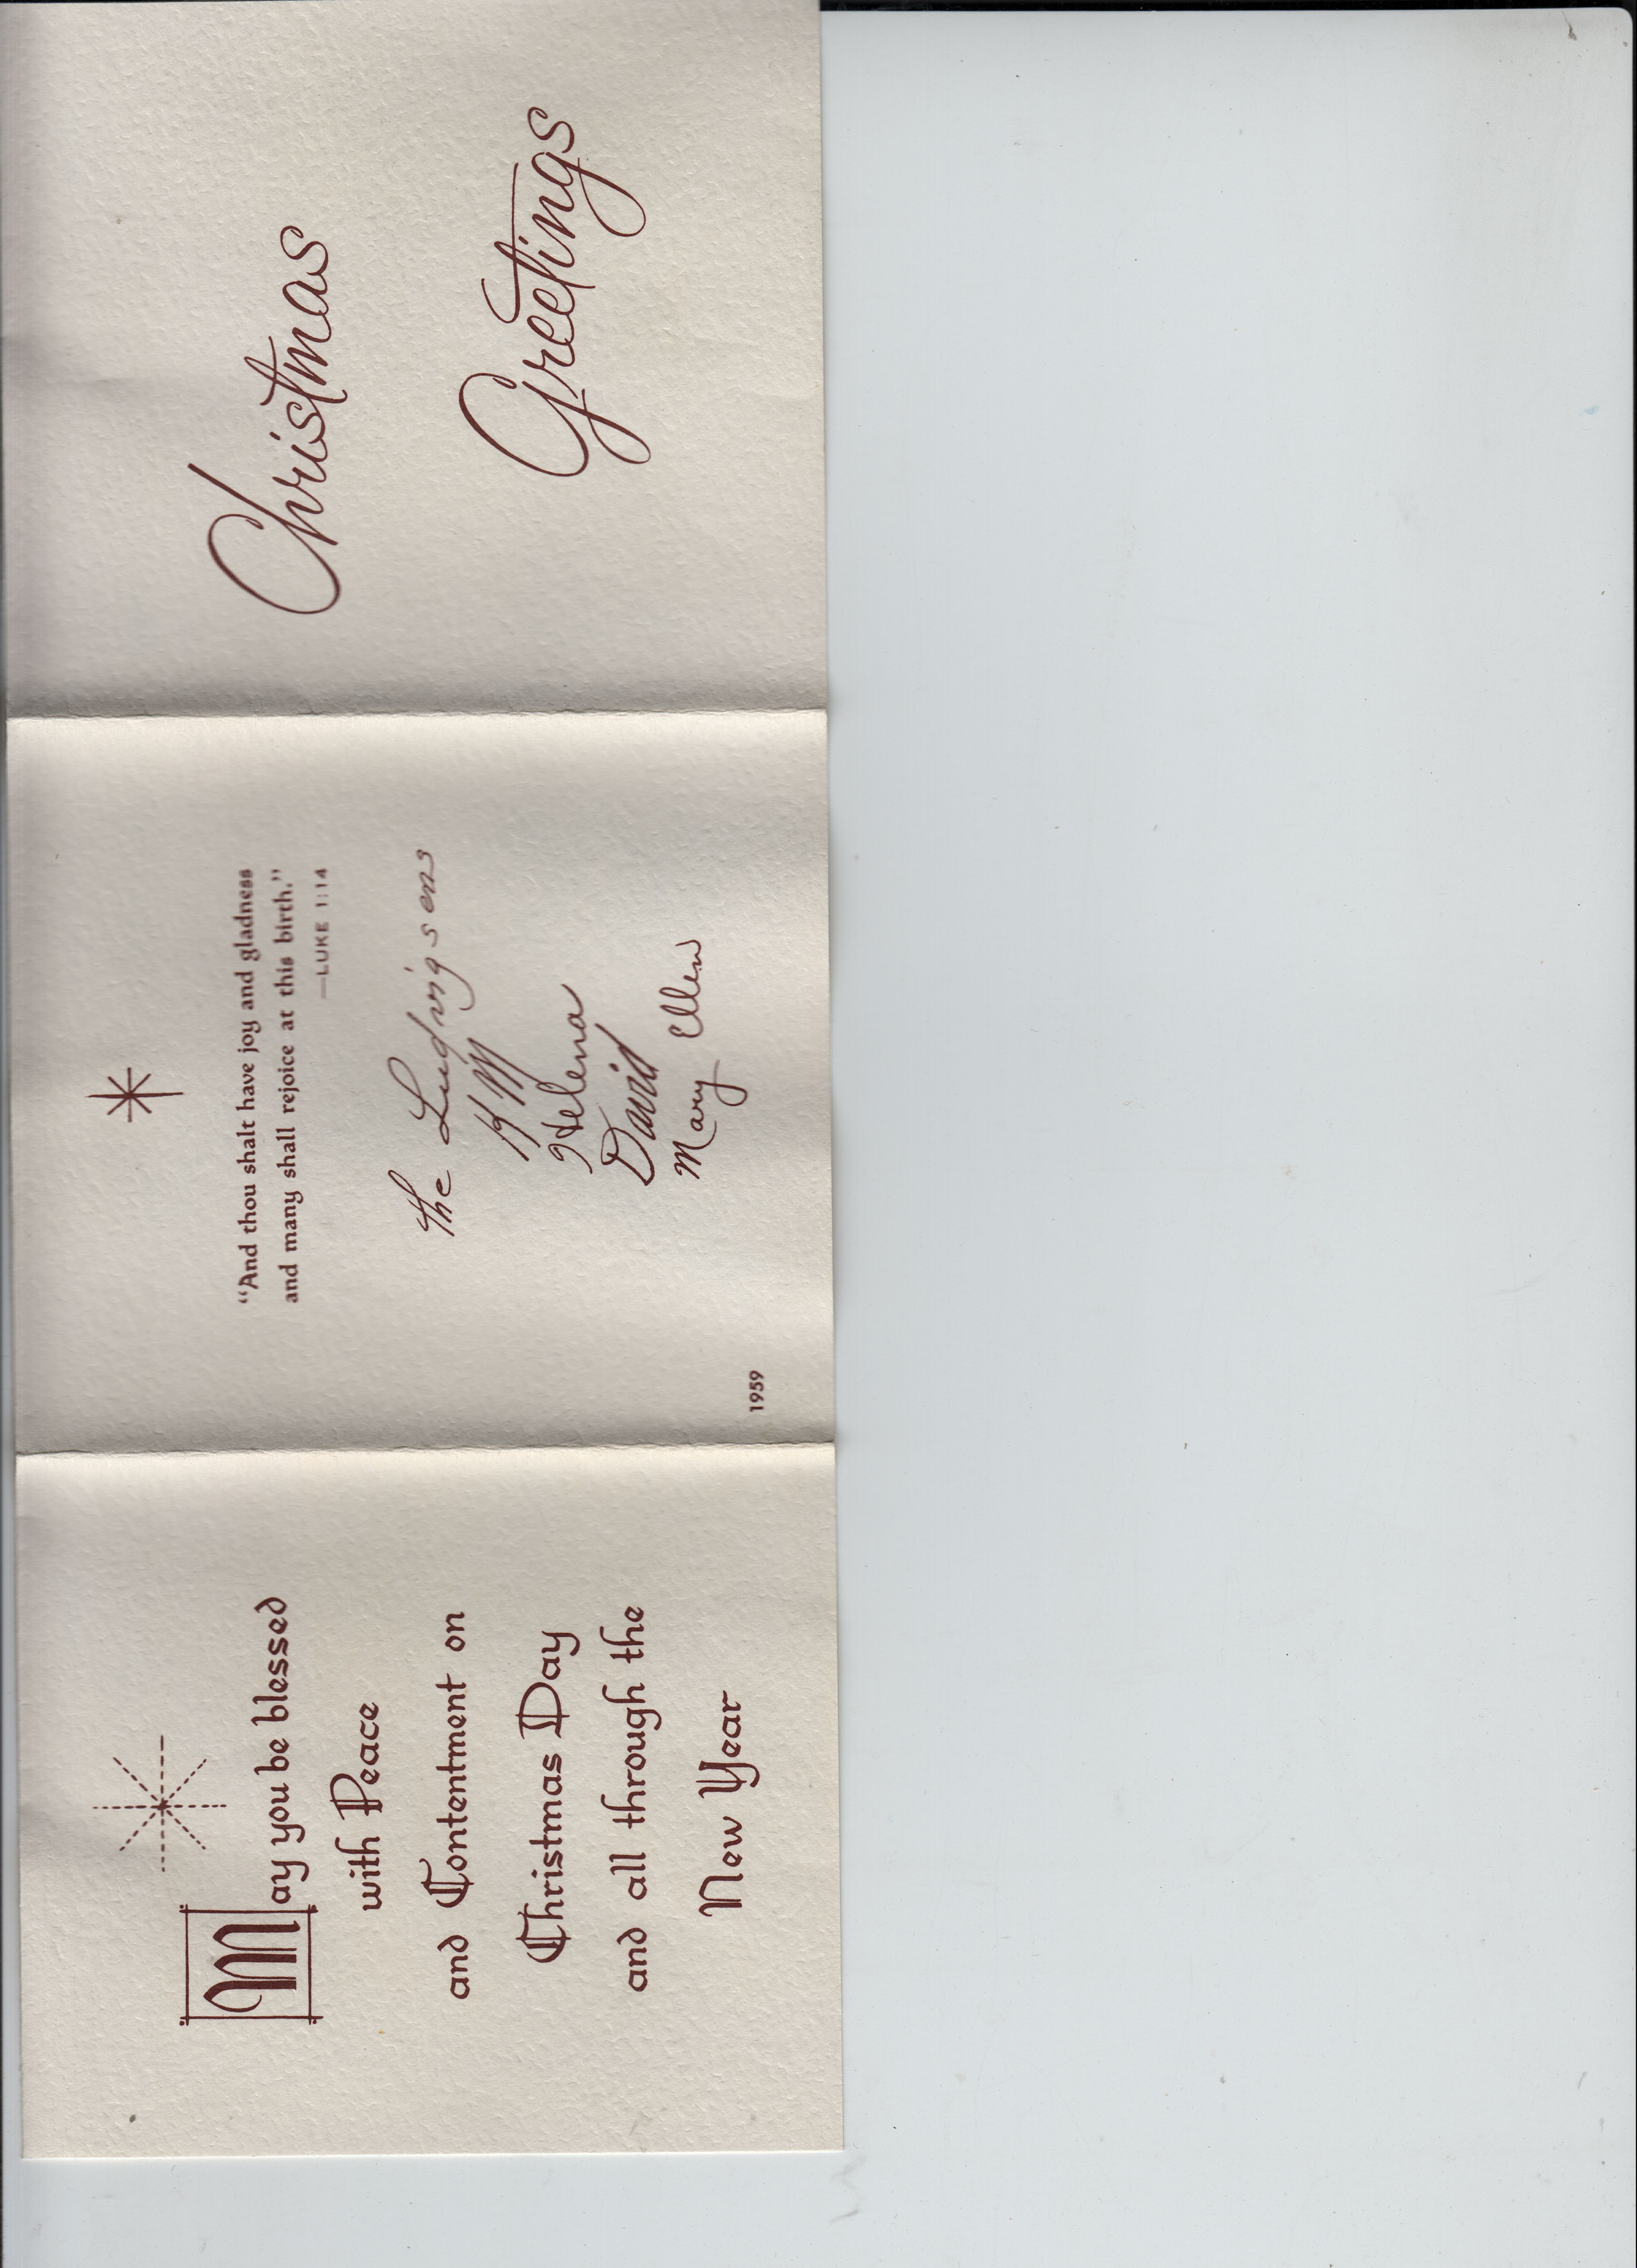 May you be blessed
with Peace
and Contentment on
Christmas Day
and all through the
New Year
"And thou shalt have joy and gladness
and many shall rejoice at this birth."
—LUKE 1:14
The Ludvigsens
H M
Helena
David
Mary Ellen
1959
Christmas
Greetings